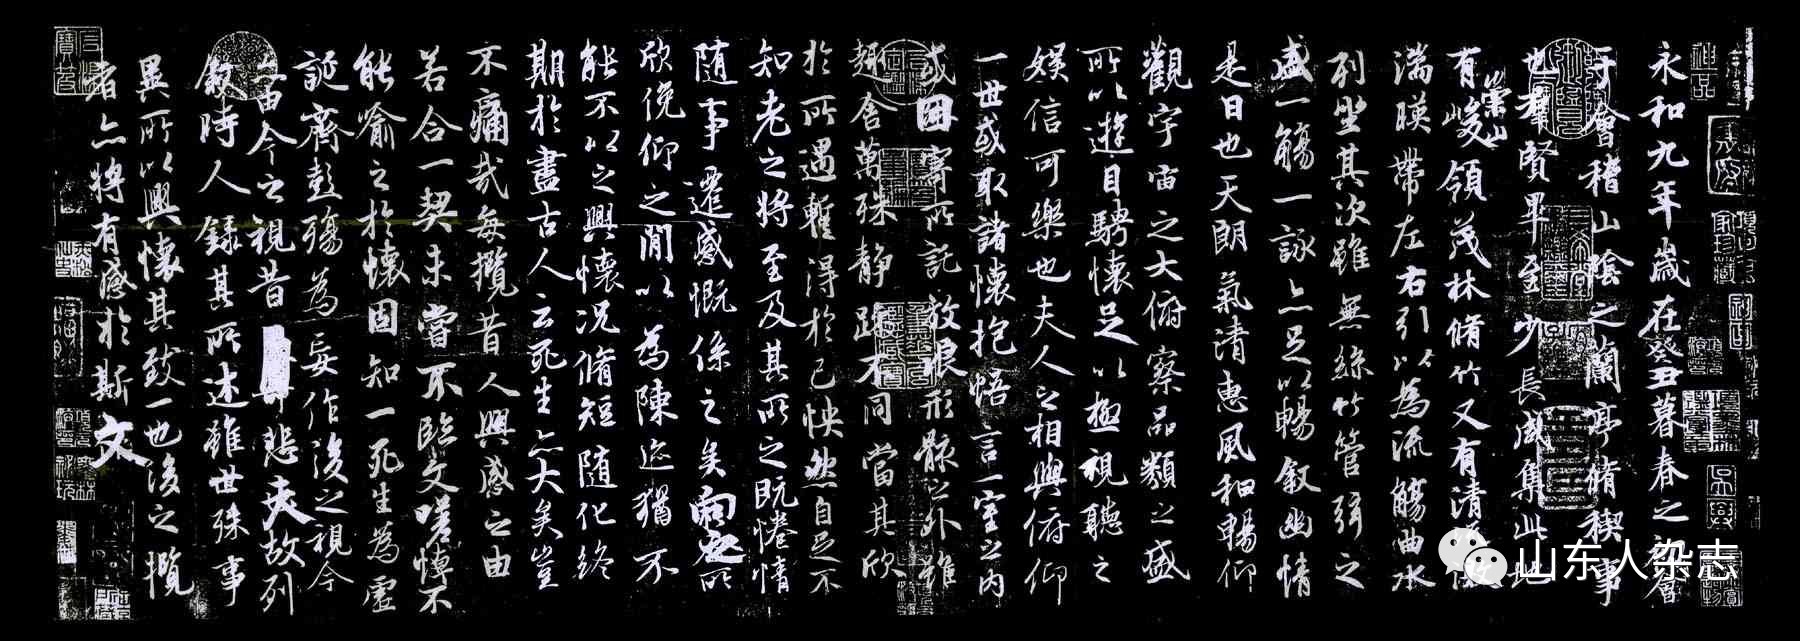 永和九年歲在癸丑暮春之初會
于會稽山陰之蘭亭脩稧事
也羣賢畢至少長咸集此地
有崇山峻領茂林脩竹又有清流激
湍暎帶左右引以為流觴曲水
列坐其次雖無絲竹管弦之
盛一觴一詠亦足以暢敘幽情
是日也天朗氣清惠風和暢仰
觀宇宙之大俯察品類之盛
所以遊目騁懷足以極視聽之
娛信可樂也夫人之相與俯仰
一世或取諸懷抱悟言一室之內
或因寄所託放浪形骸之外雖
趣舍萬殊靜躁不同當其欣
於所遇暫得於己怏然自足不
知老之將至及其所之既惓情
隨事遷感慨係之矣向之所
欣俛仰之間以為陳迹猶不
能不以之興懷況脩短隨化終
期於盡古人云死生亦大矣豈
不痛哉每攬昔人興感之由
若合一契未嘗不臨文嗟悼不
能喻之於懷固知一死生為虛
誕齊彭殤為妄作後之視今
亦由今之視昔悲夫故列
敘時人錄其所述雖世殊事
異所以興懷其致一也後之攬
者亦將有感於斯文
山东人杂志